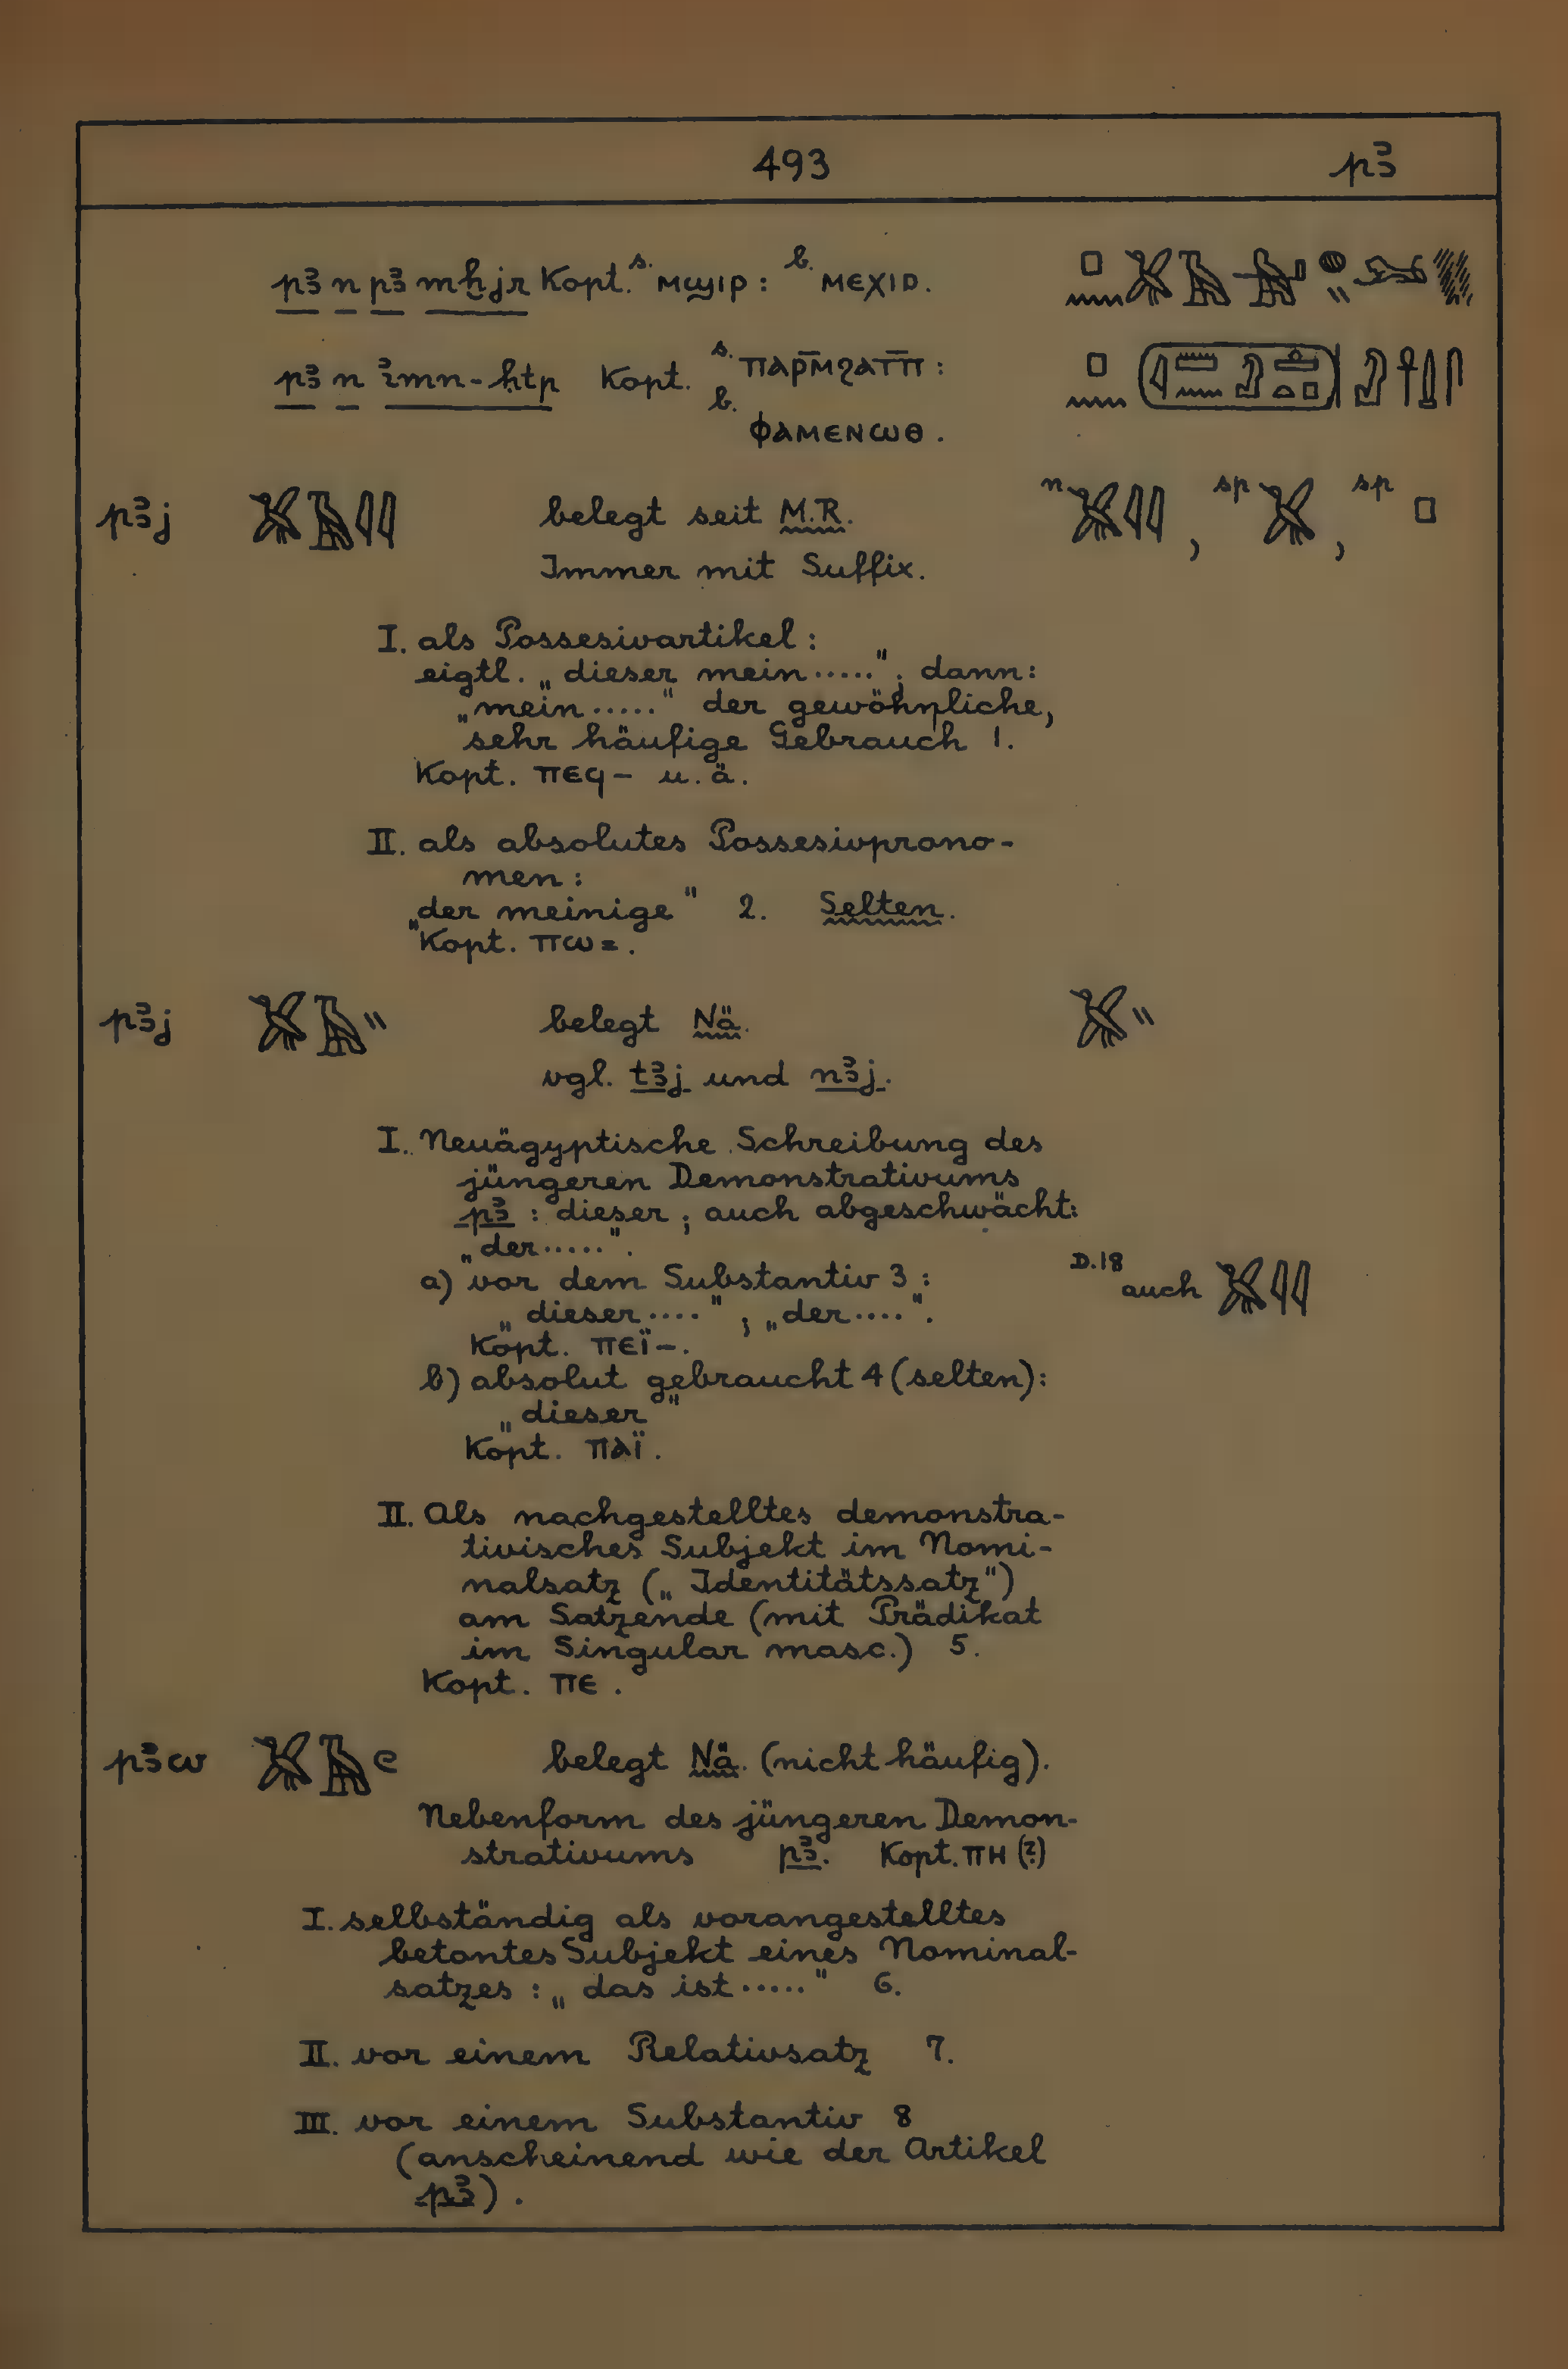 493 pꜣ
pꜣ n pꜣ mḫjr Kopt. s. ⲙϣⲓⲣ : b. ⲙⲉⲭⲓⲣ.
pꜣ n ꞽmn-ḥtp Kopt. s. ⲡⲁⲣⲙ̄ϩⲁⲧⲡ̄ :
b. ⲫⲁⲙⲉⲛⲱⲑ .
pꜣj 𓅮𓄿𓇋𓇋 belegt seit M.R. n 𓅮𓇋𓇋 , sp 𓅮 , sp 𓊪
Immer mit Suffix.
I. als Possesivartikel :
eigtl. „dieser mein ....."; dann:
„mein ....." der gewöhnliche,
sehr häufige Gebrauch 1.
Kopt. ⲡⲉϥ– u. ä.
II. als absolutes Possesivprono-
men :
„der meinige" 2. Selten.
Kopt. ⲡⲱ= .
pꜣj 𓅮𓄿𓏭 belegt Nä. 𓅮𓏭
vgl. tꜣj und nꜣj.
I. Neuägyptische Schreibung des
jüngeren Demonstrativums
pꜣ : dieser ; auch abgeschwächt:
„der ....." .
a) vor dem Substantiv 3 : D.18 auch 𓅮𓇋𓇋
„dieser ...." ; „der ....".
Kopt. ⲡⲉⲓ̈–.
b) absolut gebraucht 4 (selten):
„dieser"
Kopt. ⲡⲁⲓ̈ .
II. Als nachgestelltes demonstra-
tivisches Subjekt im Nomi-
nalsatz („Identitätssatz")
am Satzende (mit Prädikat
im Singular masc.) 5.
Kopt. ⲡⲉ .
pꜣw 𓅮𓄿𓏲 belegt Nä. (nicht häufig).
Nebenform des jüngeren Demon-
strativums pꜣ. Kopt. ⲡⲏ (?)
I. selbständig als vorangestelltes
betontes Subjekt eines Nominal-
satzes : „das ist ....." 6.
II. vor einem Relativsatz 7.
III. vor einem Substantiv 8
(anscheinend wie der Artikel
pꜣ) .